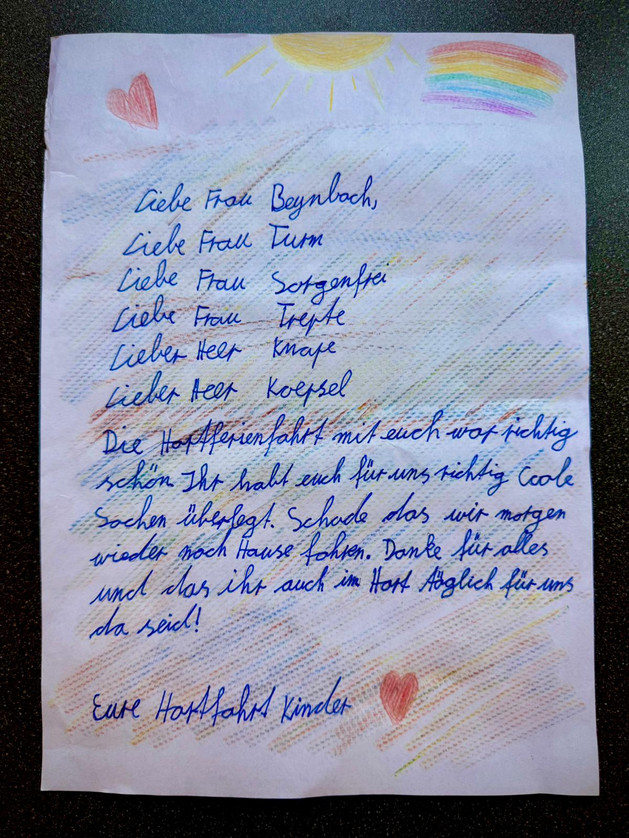 Liebe Frau Beynbach,
Liebe Frau Turm
Liebe Frau Sorgenfrei
Liebe Frau Trepte
Lieber Heer Knape
Lieber Heer Koepsel
Die Hortferienfahrt mit euch war richtig
schön. Ihr habt euch für uns richtig Coole
Sachen überlegt. Schade das wir morgen
wieder nach Hause fahren. Danke für alles
und das ihr auch im Hort täglich für uns
da seid!
Eure Hortfahrt Kinder